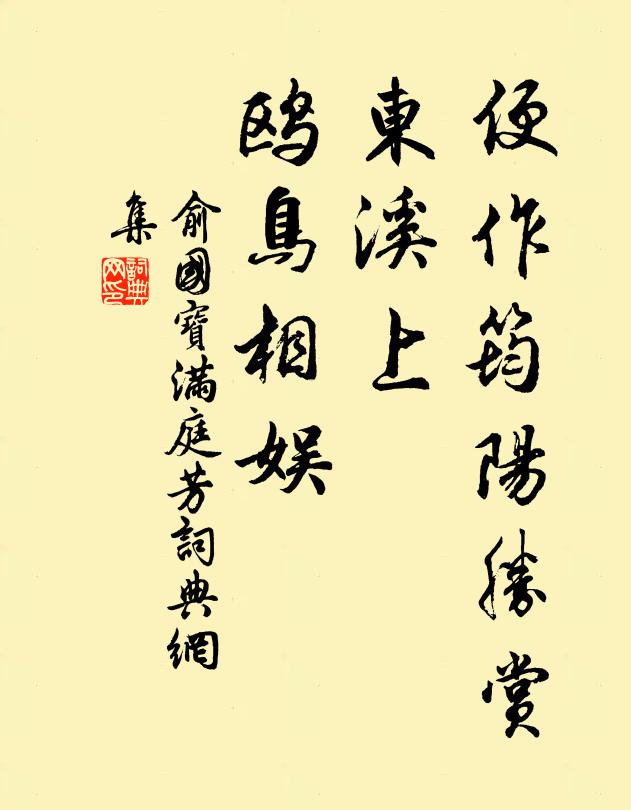 便作筠陽勝賞
東溪上
鸥鳥相娱
俞國寶滿庭芳詞典網
集
詞典
网印